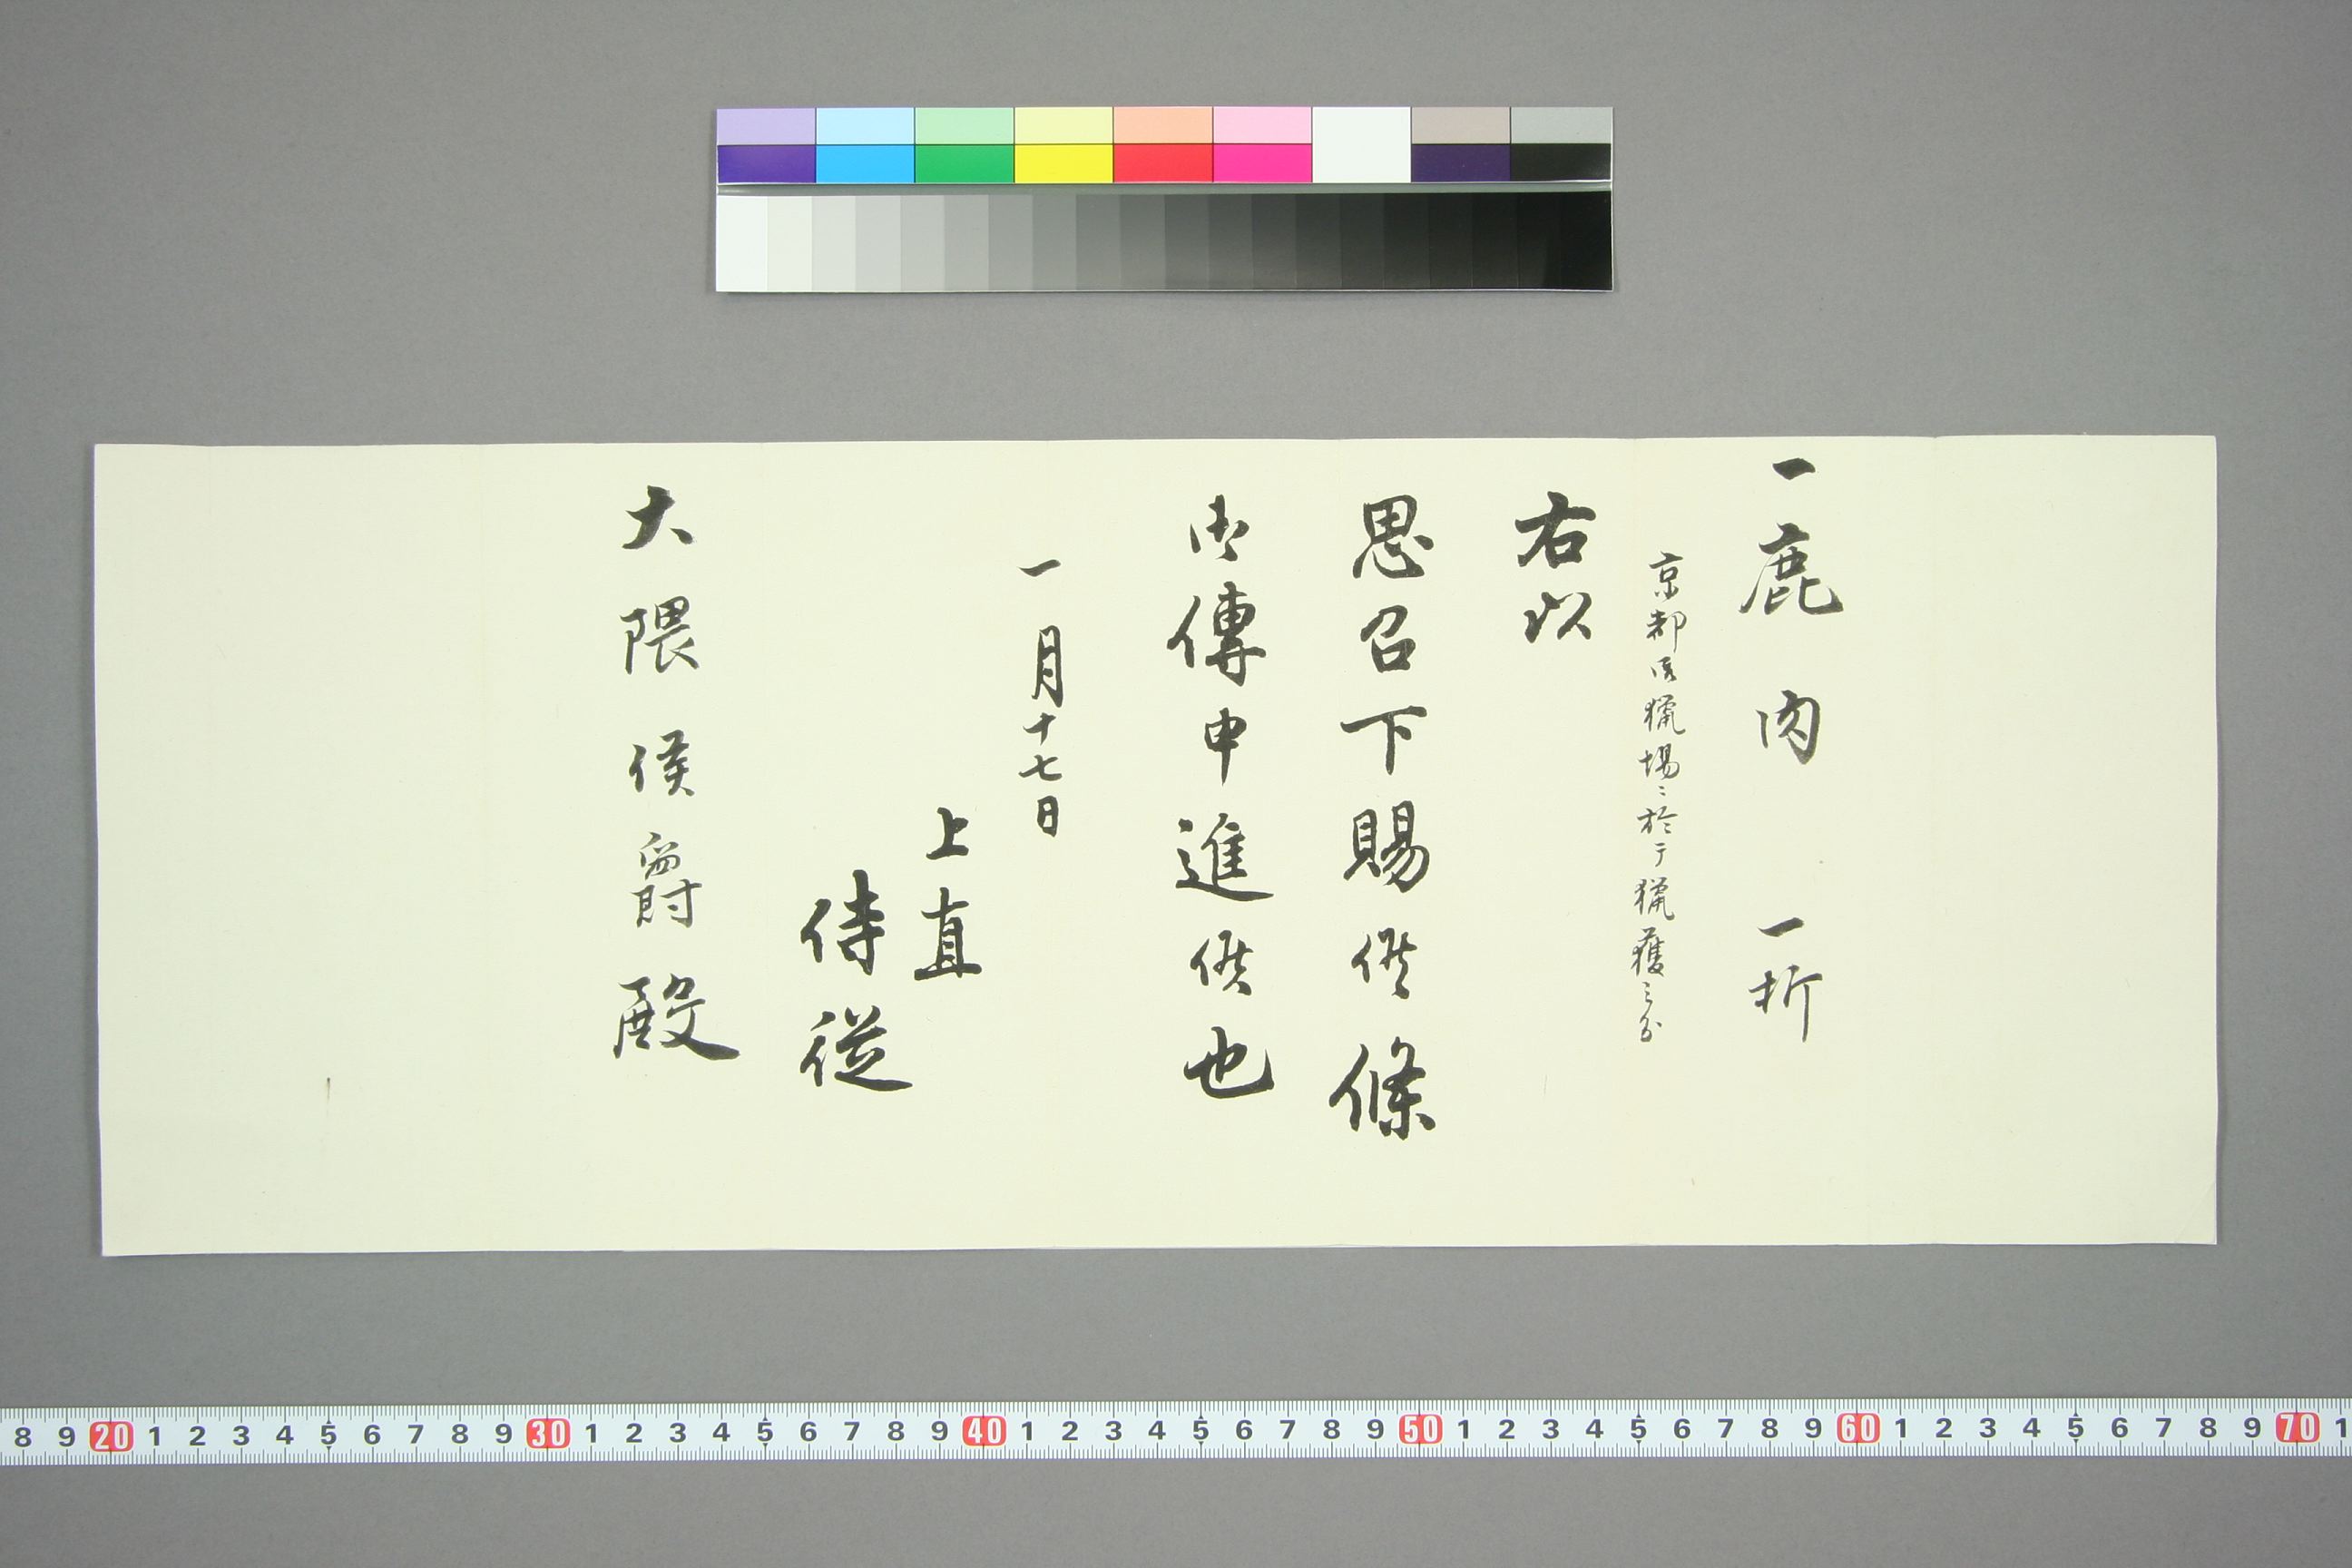 一鹿肉 一折
京都御猟場ニ於テ猟獲之分
右以
思召下賜候條
御傳申進候也
一月十七日
上直
侍従
大隈侯爵殿
8 9 20 1 2 3 4 5 6 7 8 9 30 1 2 3 4 5 6 7 8 9 40 1 2 3 4 5 6 7 8 9 50 1 2 3 4 5 6 7 8 9 60 1 2 3 4 5 6 7 8 9 70 1